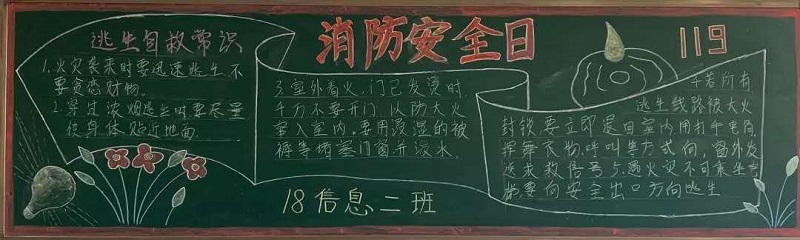 消防安全日
119
逃生自救常识
1.火灾袭来时要迅速逃生不
要贪恋财物。
2.穿过浓烟逃生时要尽量
使身体贴近地面.
3.室外着火,门已发烫时
千万不要开门,以防大火
窜入室内,要用浸湿的被
褥等堵塞门窗并泼水.
4若所有
逃生线路被大火
封锁,要立即退回室内用打手电筒,
挥舞衣物,呼叫等方式向,窗外发
送求救信号5.遇火灾不可乘坐电
梯要向安全出口方向逃生
18信息二班